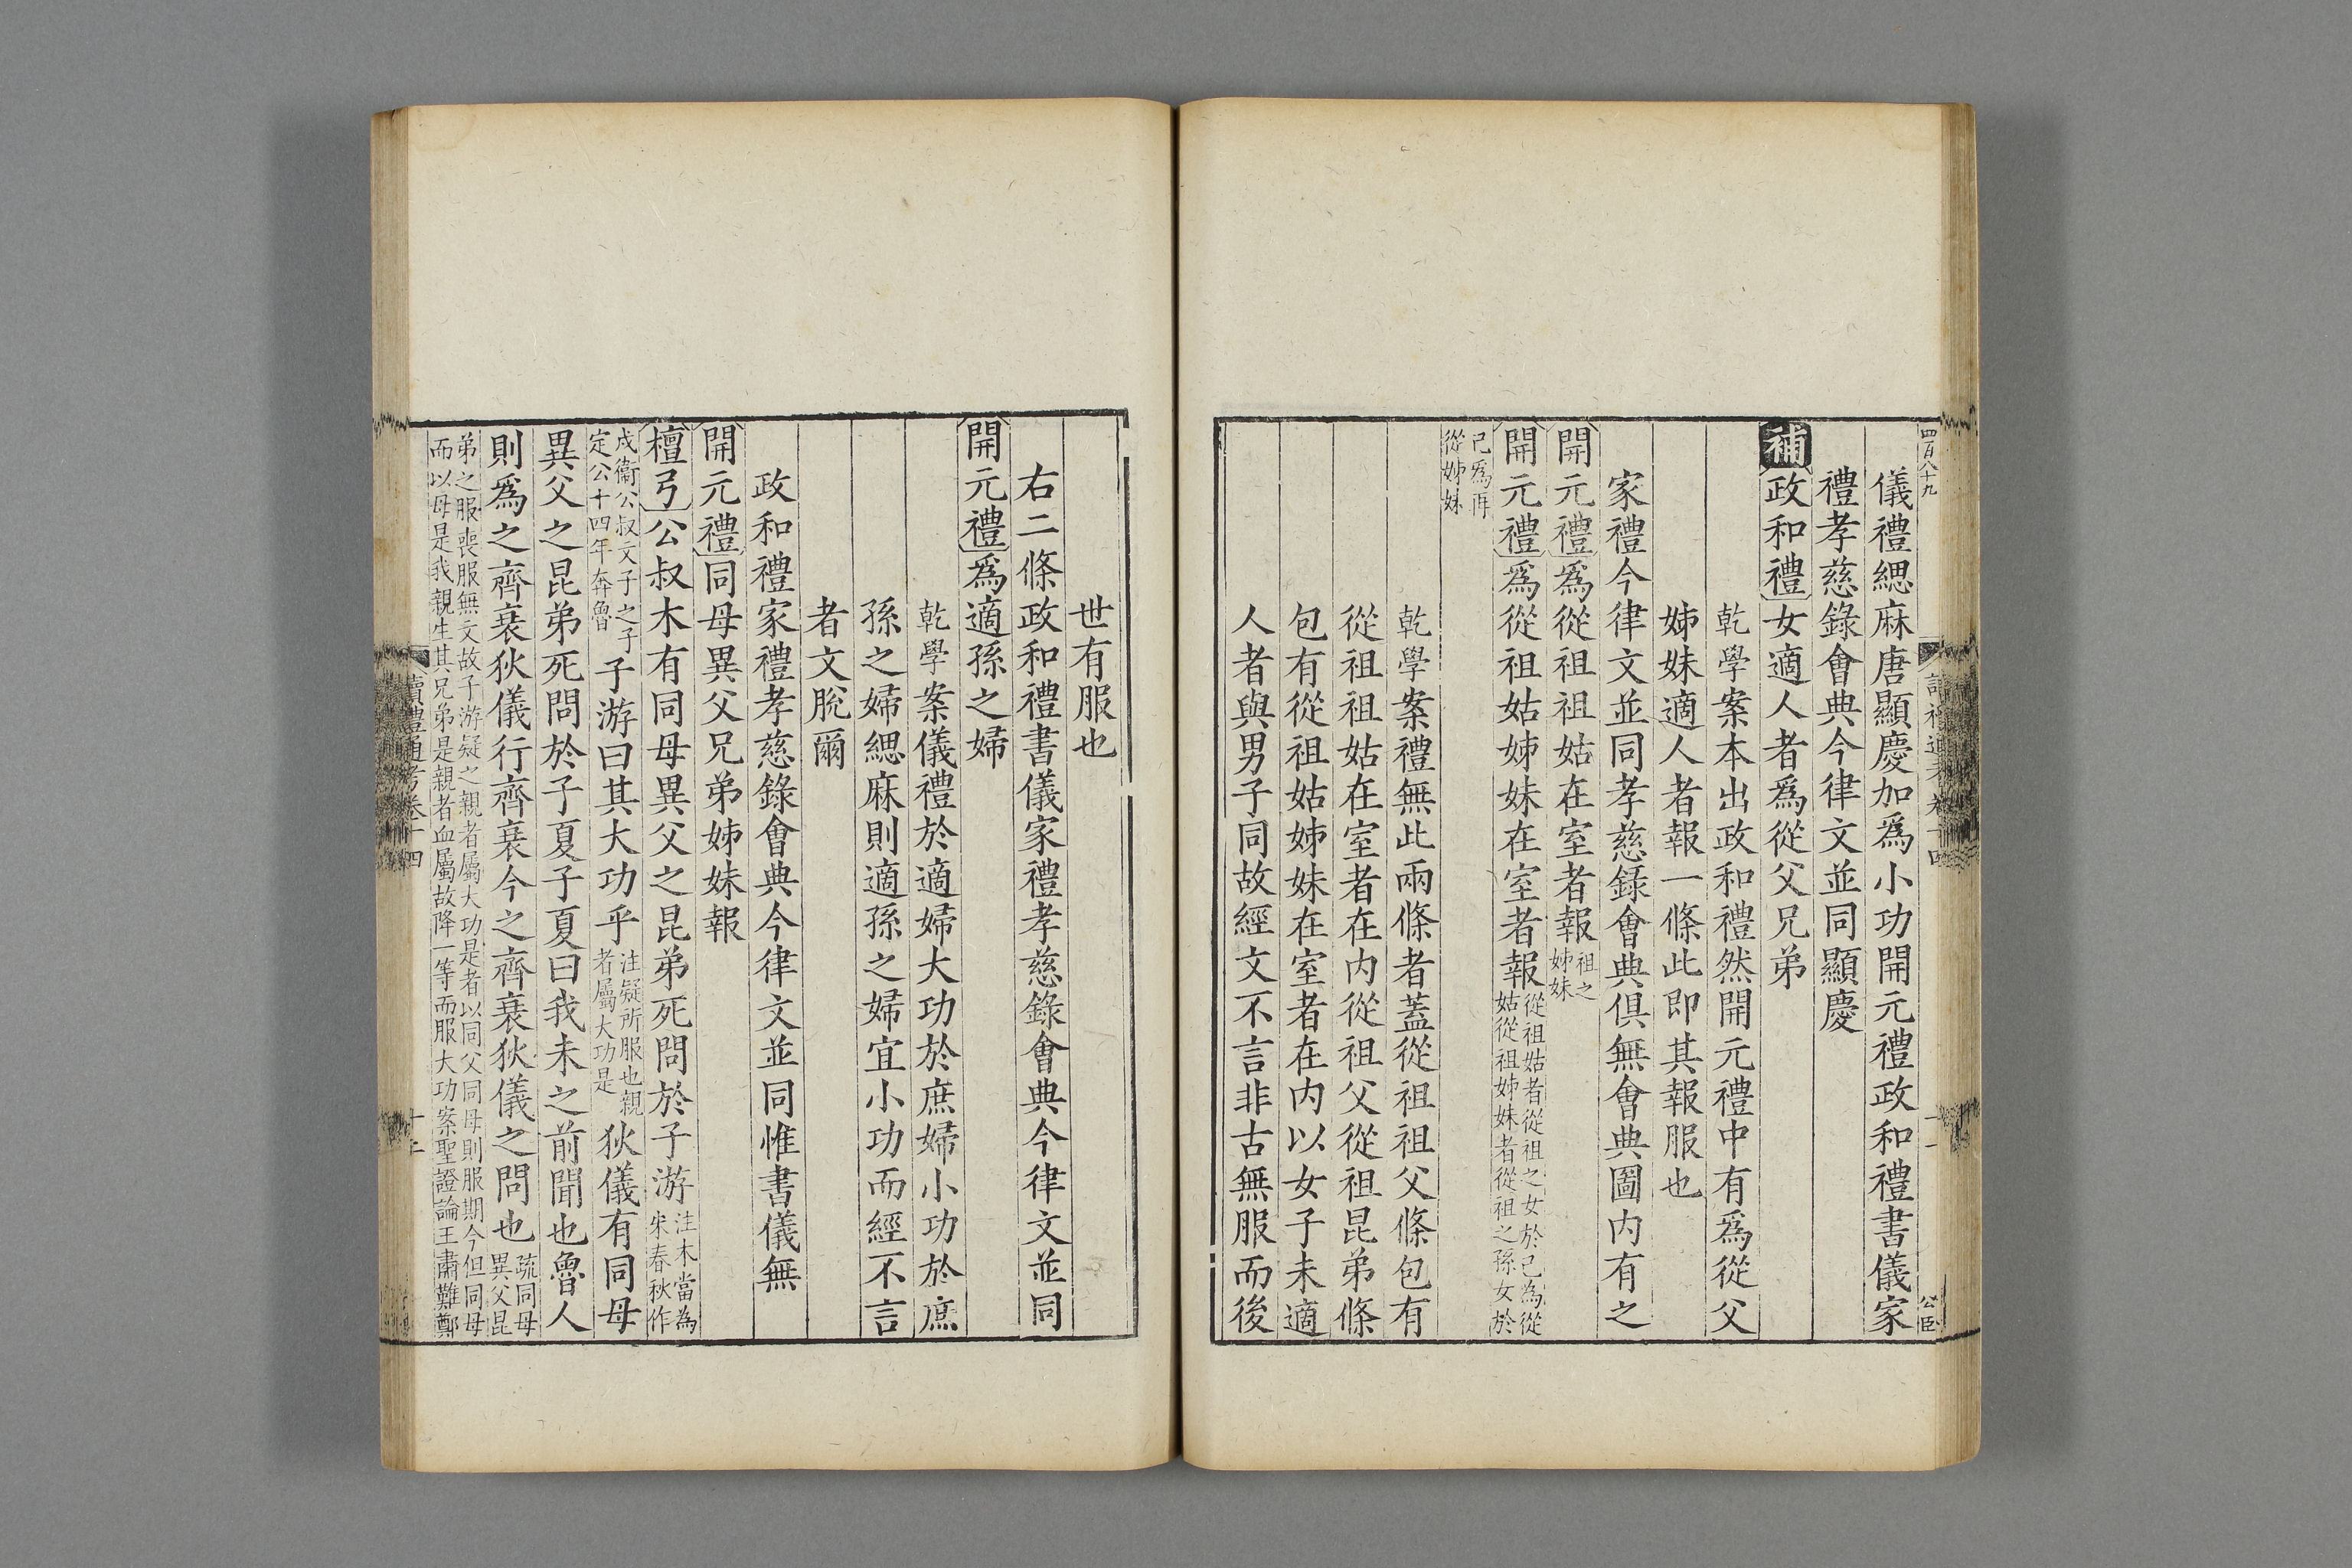 四百八十九
儀禮緦麻唐顯慶加爲小功開元禮政和禮書儀家
禮孝慈錄會典今律文並同顯慶
補政和禮女適人者爲從父兄弟
乾學案本出政和禮然開元禮中有爲從父
姊妹適人者報一條此即其報服也
家禮今律文並同孝慈錄會典俱無會典圖內有之
開元禮爲從祖祖姑在室者報祖之
姊妹
開元禮爲從祖姑姊妹在室者報從祖姑者從祖之女於己為從
姑從祖姊妹者從祖之孫女於
己爲再
從姊妹
乾學案禮無此兩條者蓋從祖祖父條包有
從祖祖姑在室者在內從祖父從祖昆弟條
包有從祖姑姊妹在室者在內以女子未適
人者與男子同故經文不言非古無服而後
公臣
世有服也
右二條政和禮書儀家禮孝慈錄會典今律文並同
開元禮爲適孫之婦
乾學案儀禮於適婦大功於庶婦小功於庶
孫之婦緦麻則適孫之婦宜小功而經不言
者文脫爾
政和禮家禮孝慈錄會典今律文並同惟書儀無
開元禮同母異父兄弟姊妹報
檀弓公叔木有同母異父之昆弟死問於子游注木當為
朱春秋作
戌衞公叔文子之子
定公十四年奔魯子游曰其大功乎注疑所服也親
者屬大功是狄儀有同母
異父之昆弟死問於子夏子夏曰我未之前聞也魯人
則爲之齊衰狄儀行齊衰今之齊衰狄儀之問也疏同母
異父昆
弟之服喪服無文故子游疑之親者屬大功是者以同父同母則服期今但同母
而以母是我親生其兄弟是親者血屬故降一等而服大功案聖證論王肅難鄭
讀禮通考卷十四